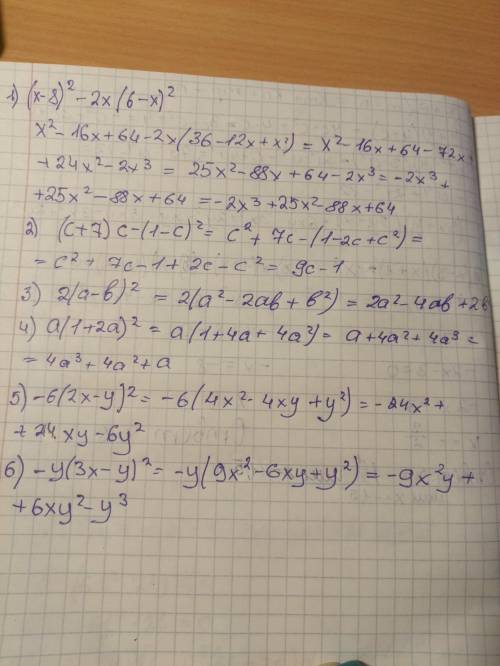 1) (x-8)² - 2x(6-x)²
x² - 16x + 64 - 2x(36 - 12x + x²) = x² - 16x + 64 - 72x +
+ 24x² - 2x³ = 25x² - 88x + 64 - 2x³ = -2x³ +
+ 25x² - 88x + 64 = -2x³ + 25x² - 88x + 64
2) (c+7)c - (1-c)² = c² + 7c - (1 - 2c + c²) =
= c² + 7c - 1 + 2c - c² = 9c - 1
3) 2(a-b)² = 2(a² - 2ab + b²) = 2a² - 4ab + 2b
4) a(1+2a)² = a(1 + 4a + 4a²) = a + 4a² + 4a³ =
= 4a³ + 4a² + a
5) -6(2x-y)² = -6(4x² - 4xy + y²) = -24x² +
+ 24xy - 6y²
6) -y(3x-y)² = -y(9x² - 6xy + y²) = -9x²y +
+ 6xy² - y³